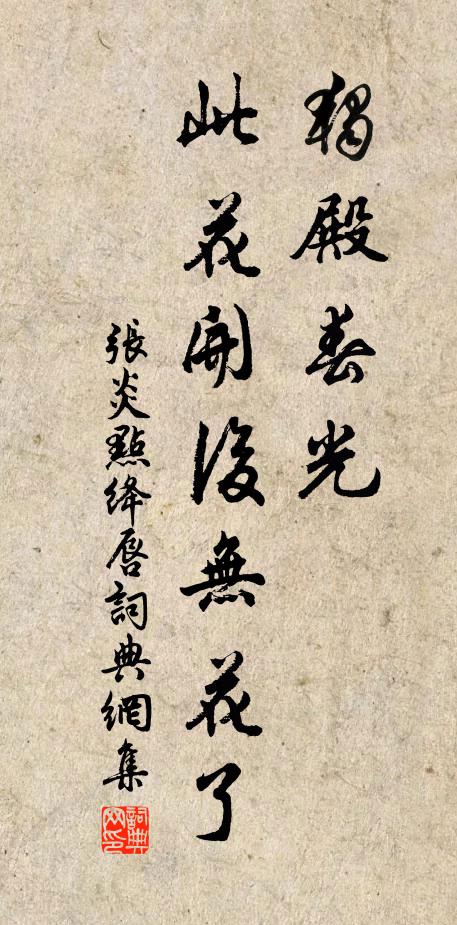 獨殿春光
此花開後無花了
張炎點絳唇詞典網集
詞典網印